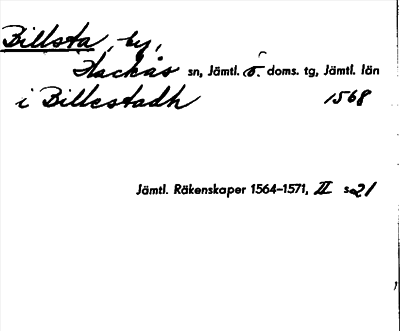 Billsta, by,
Hackås sn, Jämtl. ö. doms. tg, Jämtl. län
i Billestadh 1568
Jämtl. Räkenskaper 1564-1571, II s 21